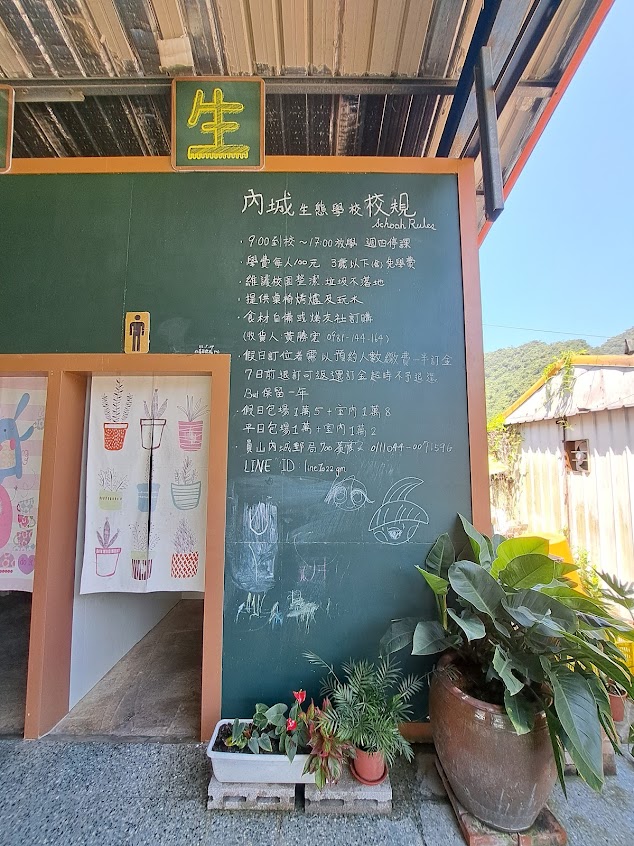 生
內城生態學校校規
School Rules
・9:00到校～17:00放學 週四停課
・學費每人100元 3歲以下(含)免學費
・維護校園整潔 垃圾不落地
・提供桌椅烤爐及玩水
・食材自備或烤友社訂購
(收貨人:黃勝宏 0931-144-164)
・假日訂位者需以預約人數繳費一半訂金
7日前退訂可退還訂金超時不予退還
But保留一年
・假日包場1萬5+室內1萬8
平日包場1萬+室內1萬2
・員山內城郵局700
LINE ID